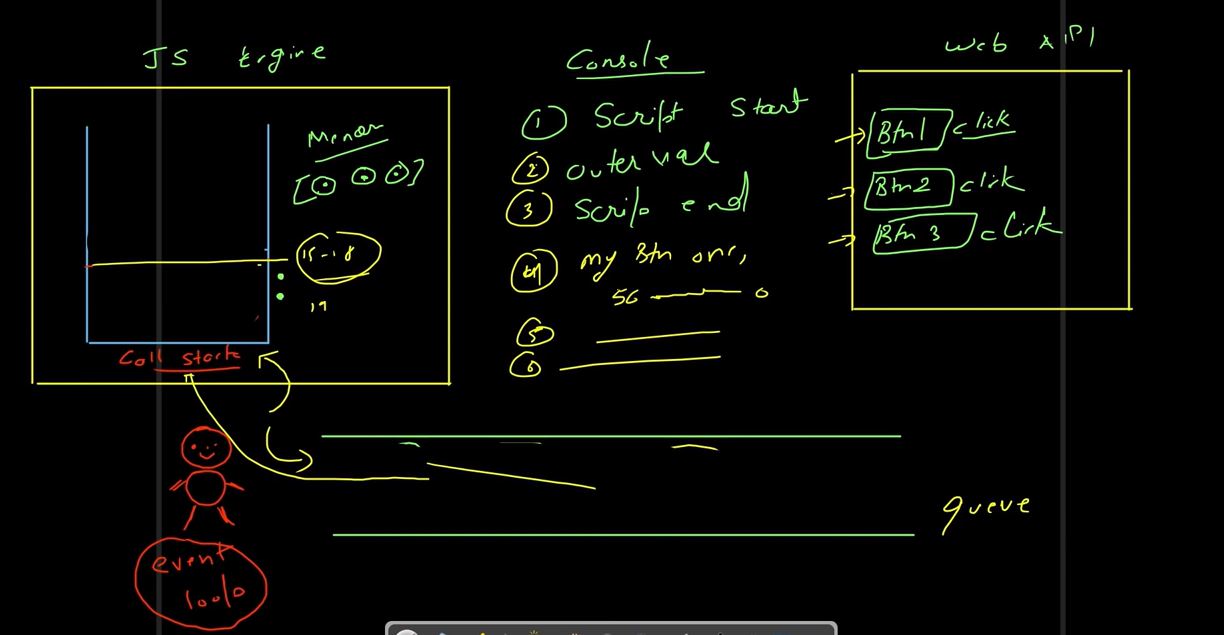 JS Engine
Memory
15-18
19
Call stack
event
loop
Console
① Script start
② outer val
③ Script end
④ my Btn one,
56 0
⑤
⑥
Web API
Btn1 click
Btn2 click
Btn 3 click
queue